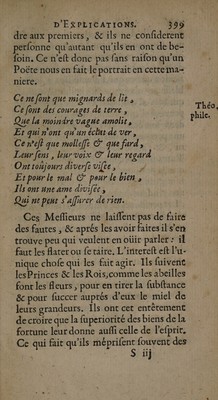 D'EXPLICATIONS. 399
dre aux premiers, & ils ne considerent
personne qu'autant qu'ils en ont de be-
soin. Ce n'est donc pas sans raison qu'un
Poëte nous en fait le portrait en cette ma-
niere.
Ce ne sont que mignards de lit,
Ce sont des courages de terre,
Que la moindre vague amolit,
Et qui n'ont qu'un éclat de ver,
Ce n'est que mollesse & que fard,
Leur sens, leur voix & leur regard
Ont toûjours diverse visée,
Et pour le mal & pour le bien,
Ils ont une ame divisée,
Qui ne peut s'assurer de rien.
Théo-
phile.
Ces Messieurs ne laissent pas de faire
des fautes, & aprés les avoir faites il s'en
trouve peu qui veulent en oüir parler: il
faut les flater ou se taire. L'interest est l'u-
nique chose qui les fait agir. Ils suivent
les Princes & les Rois, comme les abeilles
font les fleurs, pour en tirer la substance
& pour succer auprés d'eux le miel de
leurs grandeurs. Ils ont cet entêtement
de croire que la superiorité des biens de la
fortune leur donne aussi celle de l'esprit.
Ce qui fait qu'ils méprisent souvent des
S iij